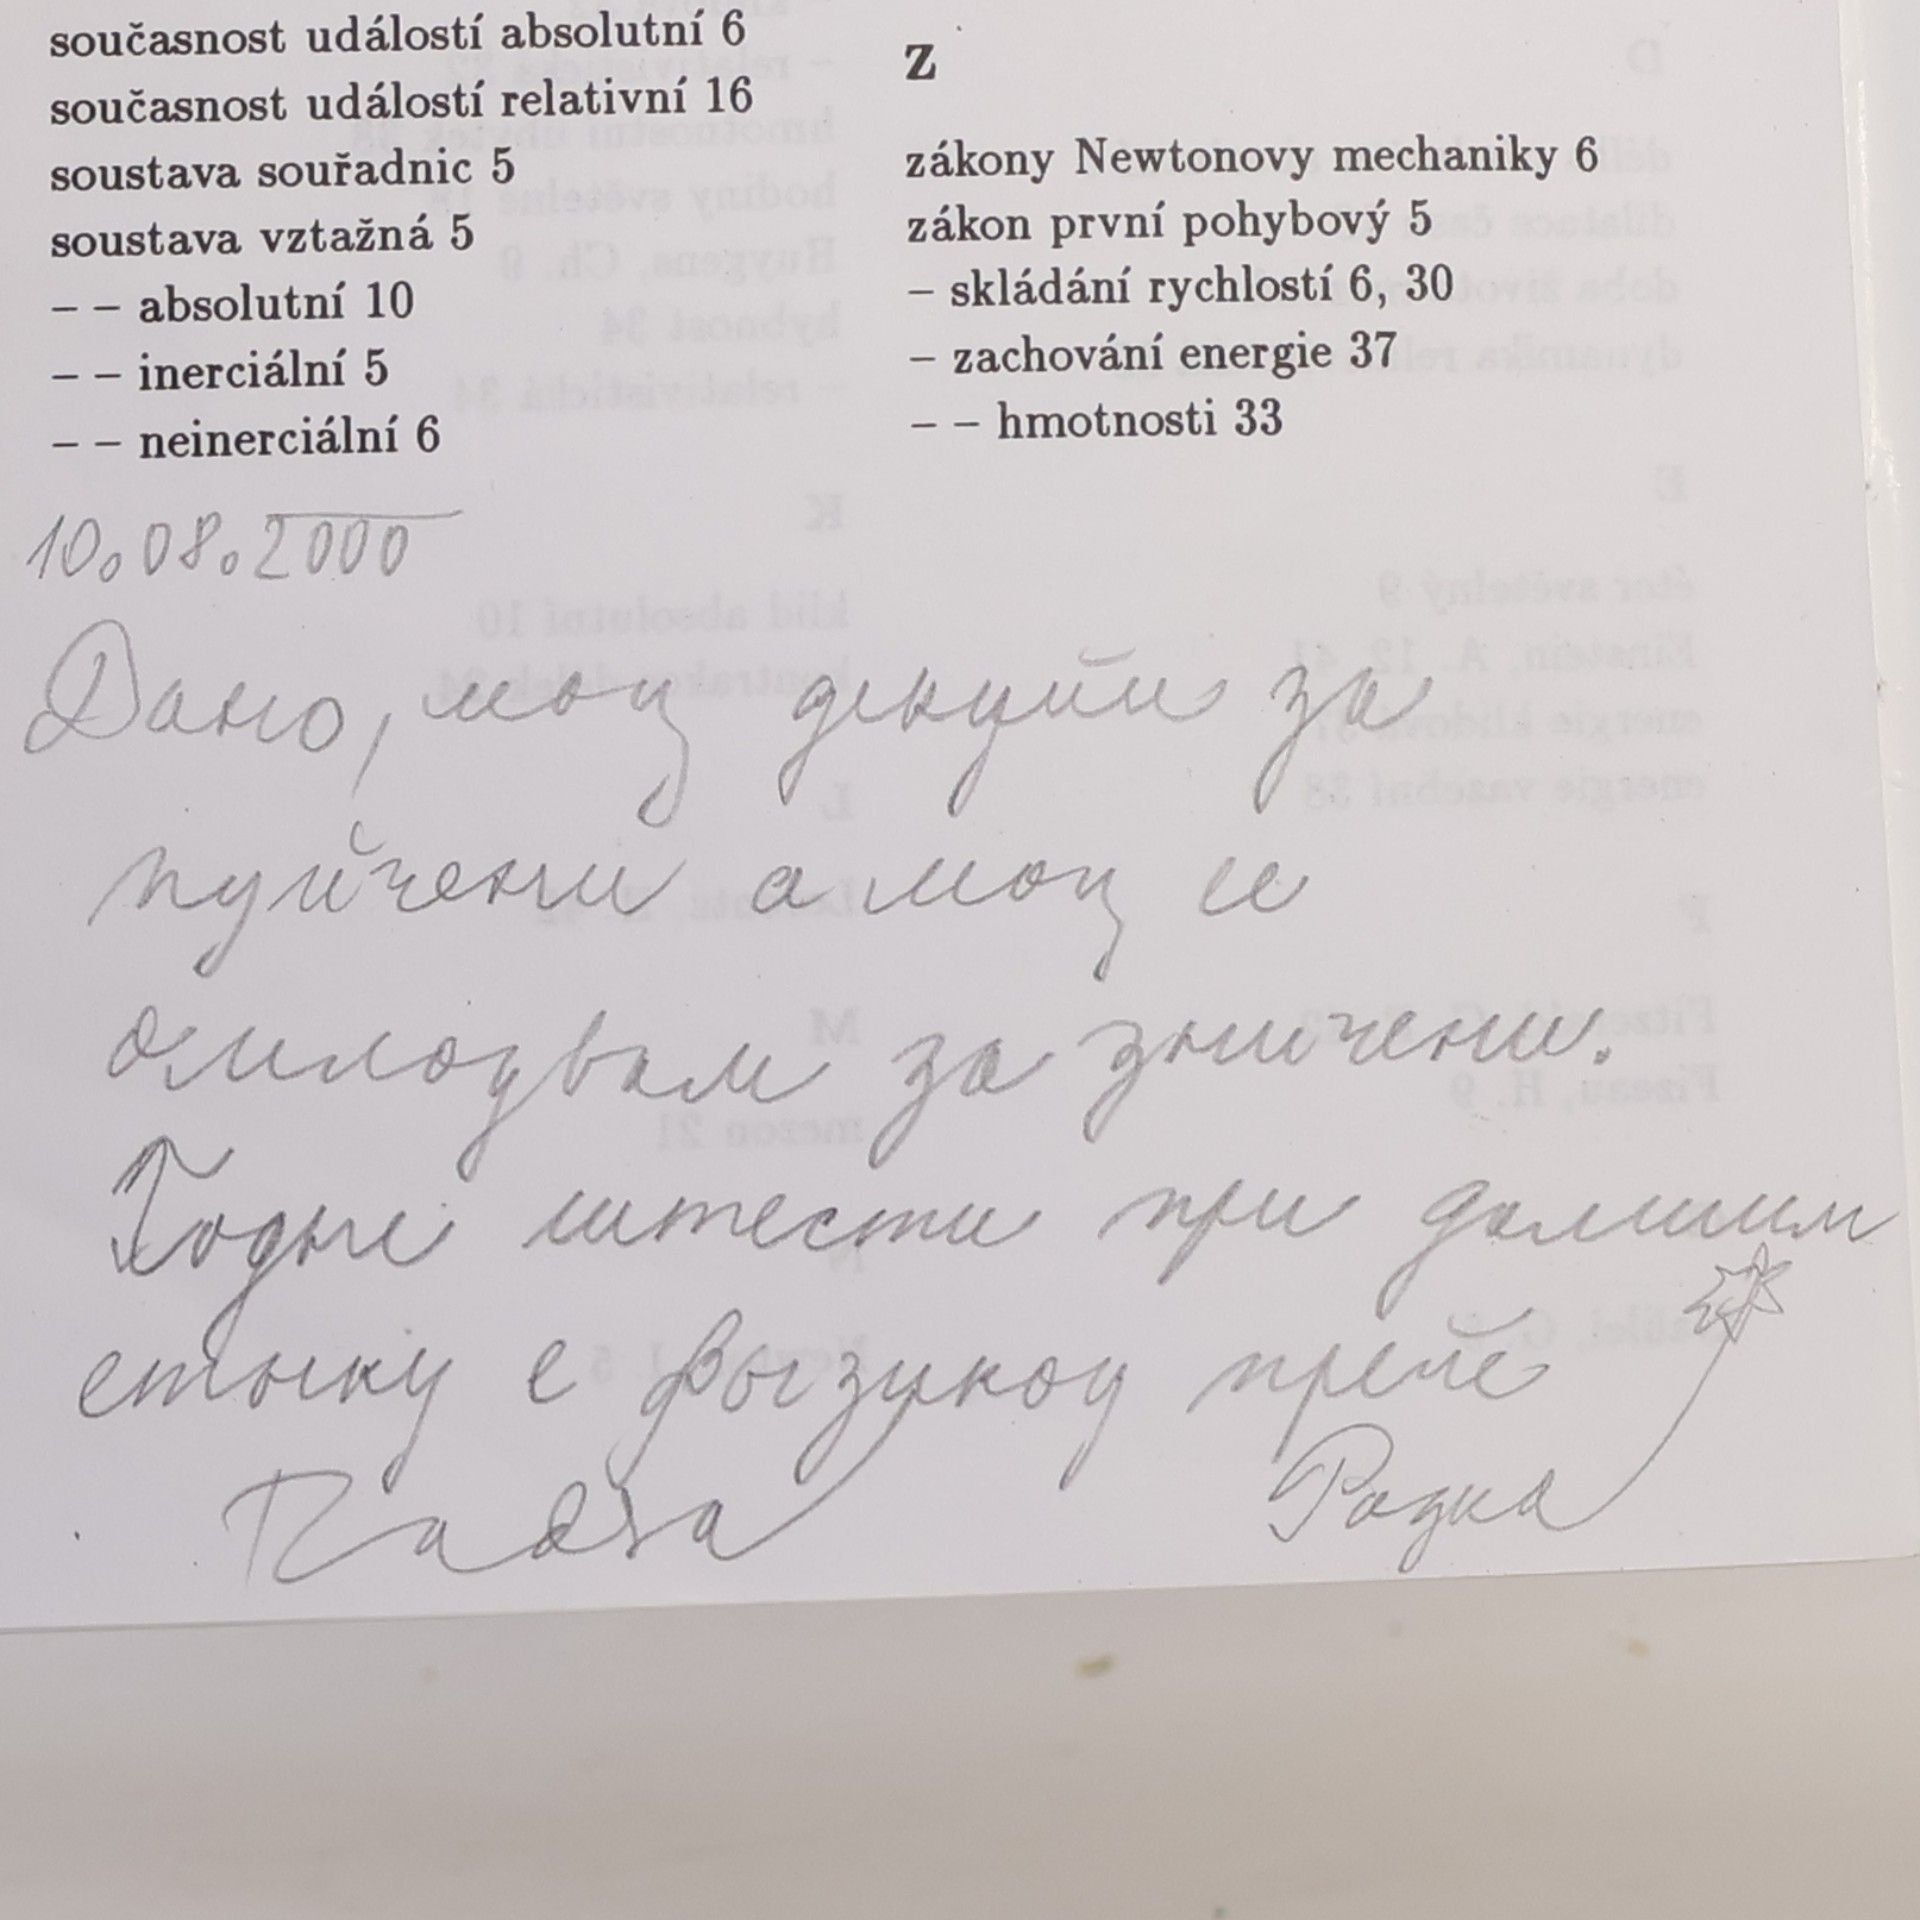 současnost událostí absolutní 6
současnost událostí relativní 16
soustava souřadnic 5
soustava vztažná 5
– – absolutní 10
– – inerciální 5
– – neinerciální 6
Z
zákony Newtonovy mechaniky 6
zákon první pohybový 5
– skládání rychlostí 6, 30
– zachování energie 37
– – hmotnosti 33
10.08.2000
Дано, моц декуйи за
пуйчени а моц се
омлоувам за зничени.
Годне штести при далшим
стыку с фызикоу преје
Радка